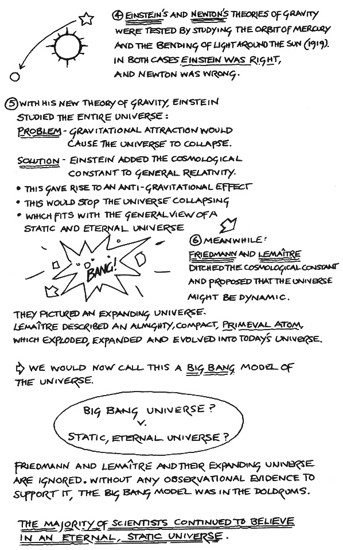 ④ EINSTEIN'S AND NEWTON'S THEORIES OF GRAVITY
WERE TESTED BY STUDYING THE ORBIT OF MERCURY
AND THE BENDING OF LIGHT AROUND THE SUN (1919).
IN BOTH CASES EINSTEIN WAS RIGHT,
AND NEWTON WAS WRONG.
⑤ WITH HIS NEW THEORY OF GRAVITY, EINSTEIN
STUDIED THE ENTIRE UNIVERSE:
PROBLEM - GRAVITATIONAL ATTRACTION WOULD
CAUSE THE UNIVERSE TO COLLAPSE.
SOLUTION - EINSTEIN ADDED THE COSMOLOGICAL
CONSTANT TO GENERAL RELATIVITY.
• THIS GAVE RISE TO AN ANTI-GRAVITATIONAL EFFECT
• THIS WOULD STOP THE UNIVERSE COLLAPSING
• WHICH FITS WITH THE GENERAL VIEW OF A
STATIC AND ETERNAL UNIVERSE
BANG!
⑥ MEANWHILE:
FRIEDMANN AND LEMAÎTRE
DITCHED THE COSMOLOGICAL CONSTANT
AND PROPOSED THAT THE UNIVERSE
MIGHT BE DYNAMIC.
THEY PICTURED AN EXPANDING UNIVERSE.
LEMAÎTRE DESCRIBED AN ALMIGHTY, COMPACT, PRIMEVAL ATOM,
WHICH EXPLODED, EXPANDED AND EVOLVED INTO TODAY'S UNIVERSE.
⇨ WE WOULD NOW CALL THIS A BIG BANG MODEL OF
THE UNIVERSE.
BIG BANG UNIVERSE?
V.
STATIC, ETERNAL UNIVERSE?
FRIEDMANN AND LEMAÎTRE AND THEIR EXPANDING UNIVERSE
ARE IGNORED. WITHOUT ANY OBSERVATIONAL EVIDENCE TO
SUPPORT IT, THE BIG BANG MODEL WAS IN THE DOLDRUMS.
THE MAJORITY OF SCIENTISTS CONTINUED TO BELIEVE
IN AN ETERNAL, STATIC UNIVERSE.